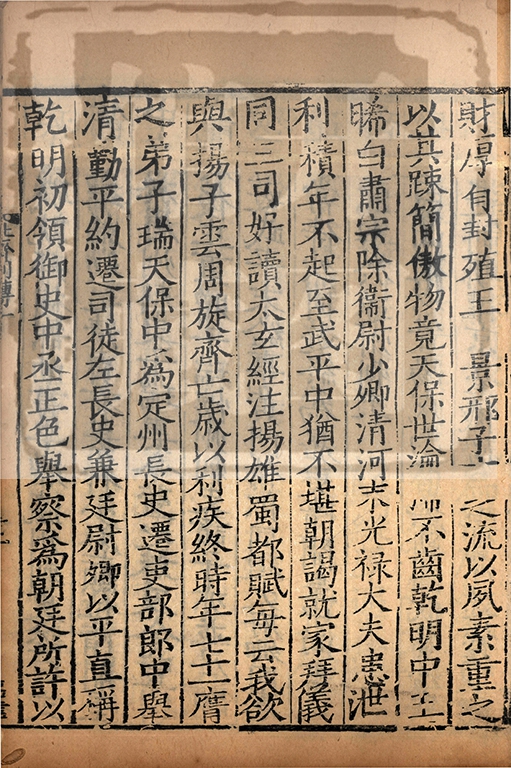 財厚自封殖王 景邢子 之流以夙素重之
以其踈簡傲物竟天保世淪 不齒乾明中王
晞白肅宗除衞尉少卿清河末光祿大夫患泄
利積年不起至武平中猶不堪朝謁就家拜儀
同三司好讀太玄經注揚雄蜀都賦每云我欲
與揚子雲周旋齊亡歲以利疾終時年七十一膺
之弟子瑞天保中爲定州長史遷吏部郎中舉
清勤平約遷司徒左長史兼廷尉卿以平直稱
乾明初領御史中丞正色舉察爲朝廷所許以